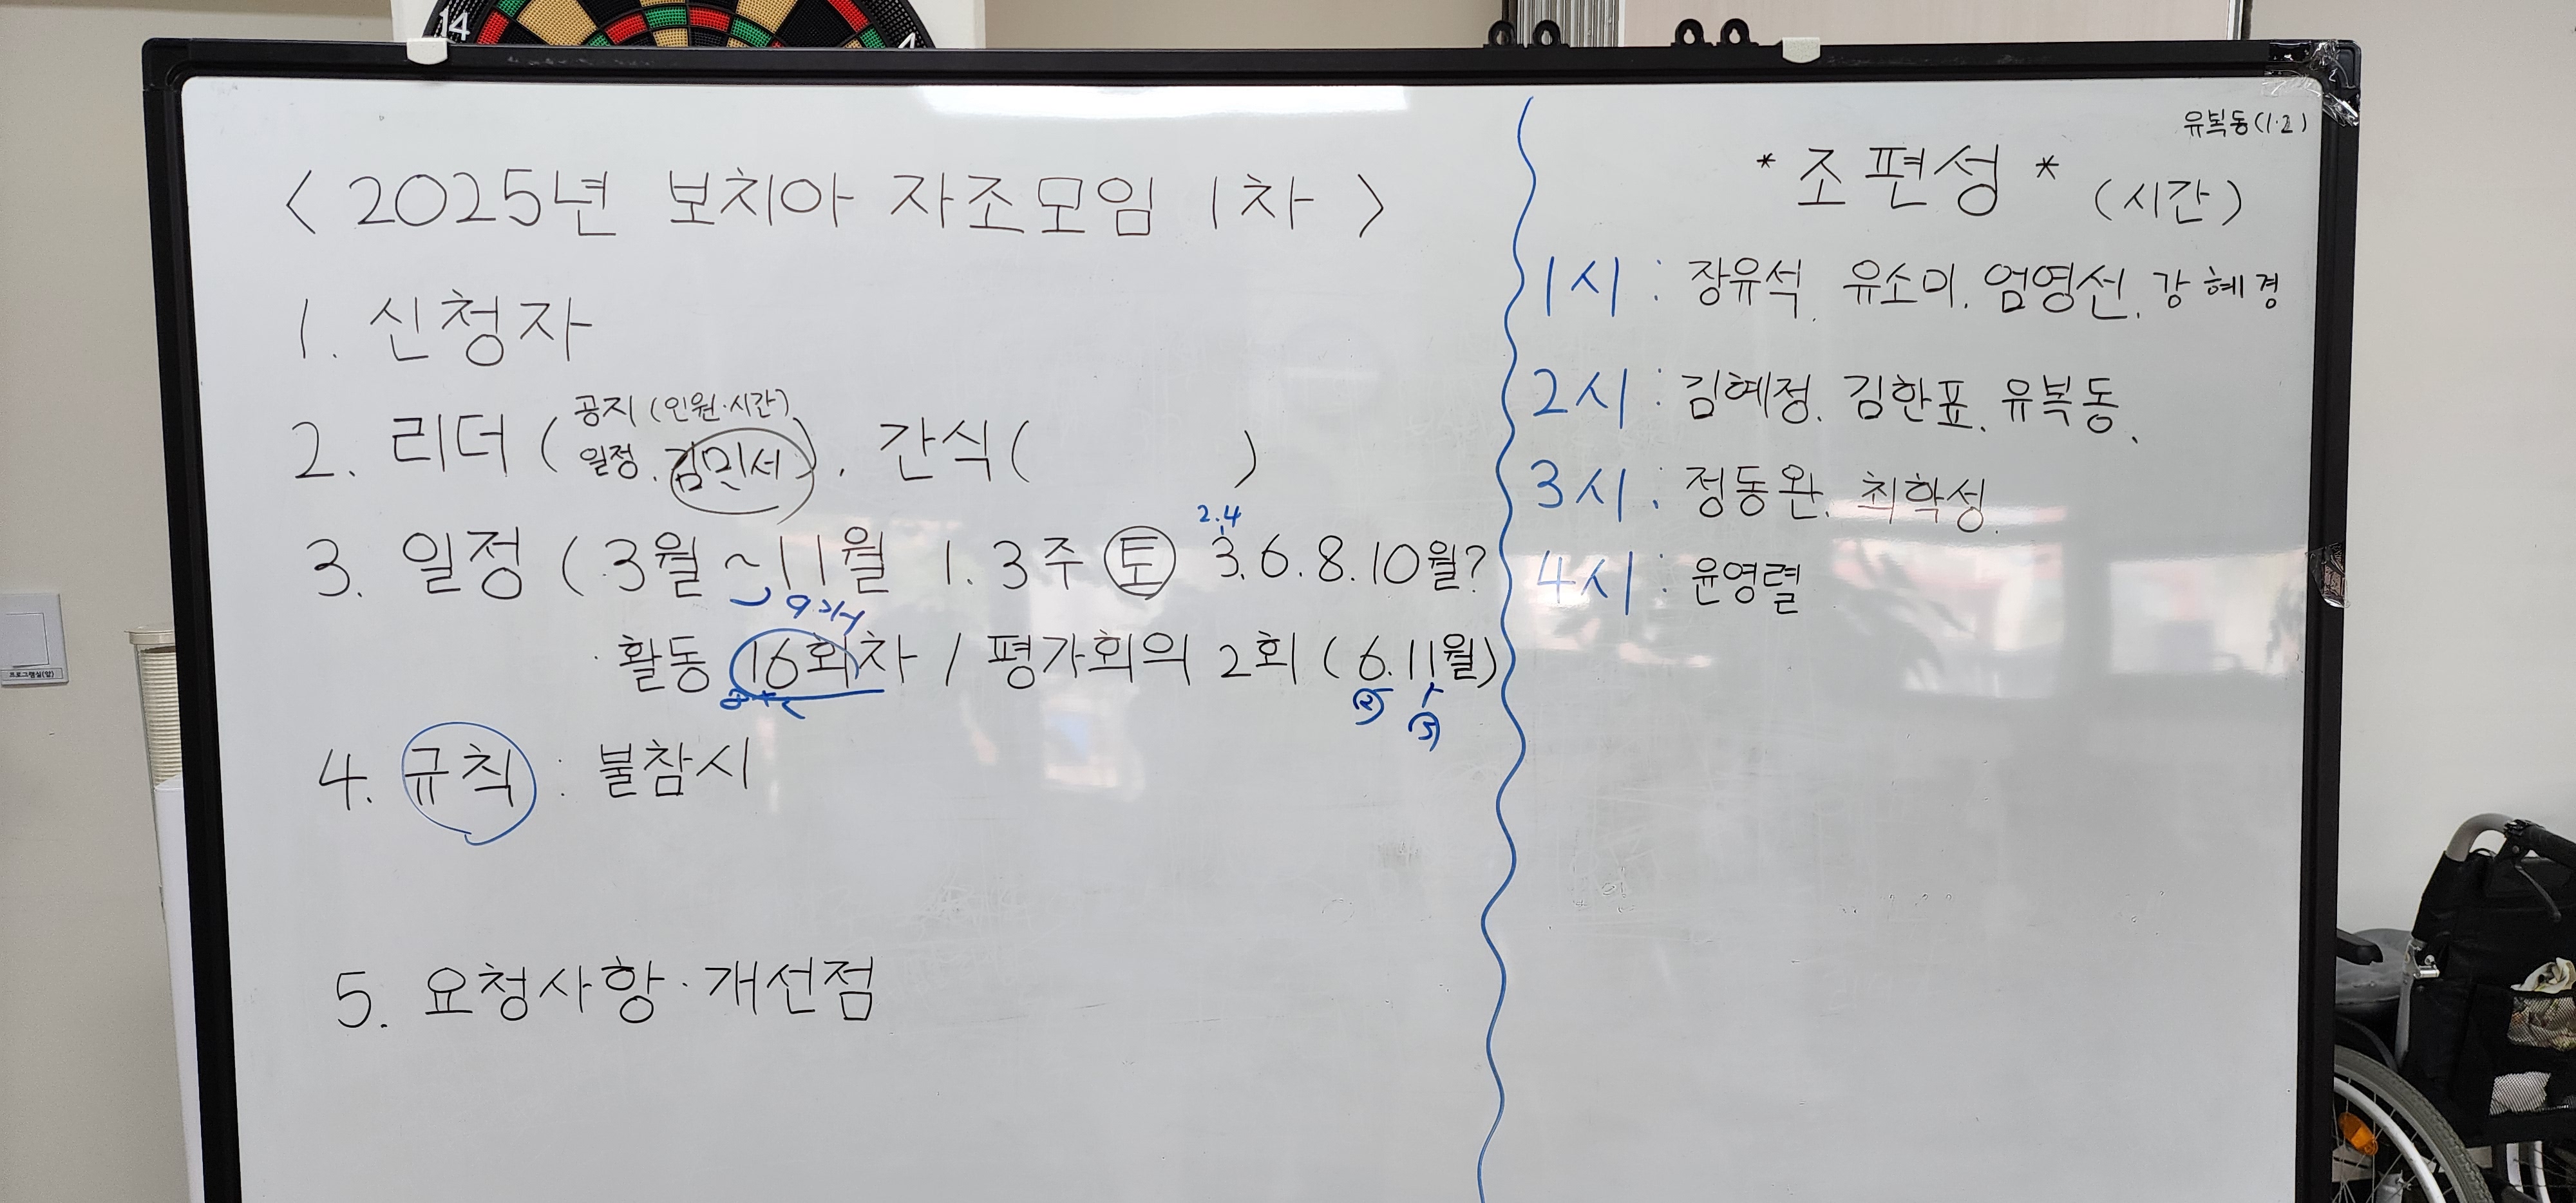 14
4
< 2025년 보치아 자조모임 1차 >
1. 신청자
공지 (인원·시간)
2. 리더 ( 일정. 김민서 ). 간식( )
2.4
3. 일정 ( 3월 ~ 11월 1. 3주 토 3. 6. 8. 10월?
9개월
· 활동 16회차 / 평가회의 2회 ( 6. 11월)
4. 규칙 : 불참시
5. 요청사항 · 개선점
유복동(1·2)
* 조편성 * (시간)
1시 : 장유석. 유소미. 엄영선. 강혜경
2시 : 김혜정. 김한표. 유복동.
3시 : 정동완. 최학성.
4시 : 윤영렬
프로그램실(앞)